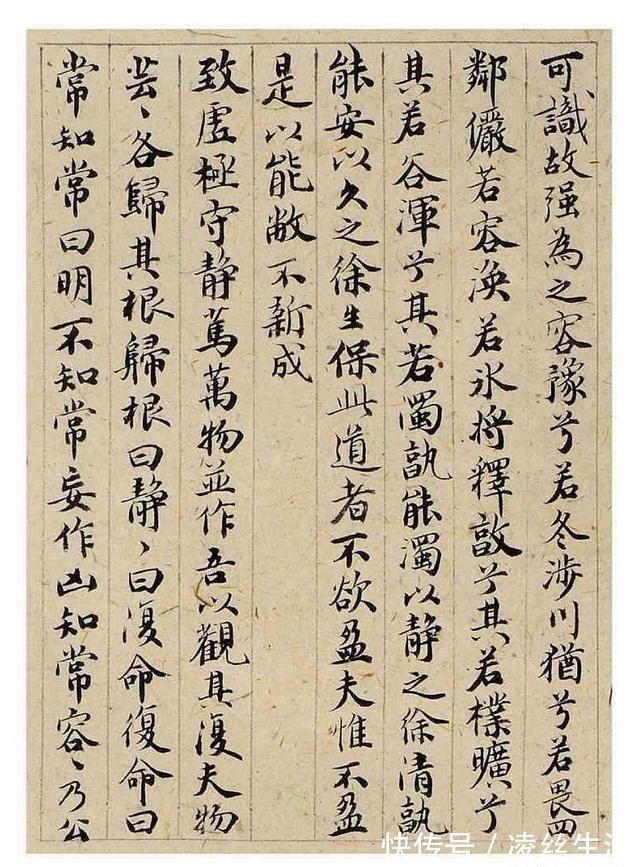 可識故强為之容豫兮若冬涉川猶兮若畏四
鄰儼若容渙若氷将釋敦兮其若樸曠兮
其若谷渾兮其若濁孰能濁以静之徐清孰
能安以久之徐生保此道者不欲盈夫惟不盈
是以能敝不新成
致虚極守静篤萬物並作吾以觀其復夫物
芸〻各歸其根歸根曰静〻曰復命復命曰
常知常曰明不知常妄作凶知常容〻乃公
快传号/凌丝生活